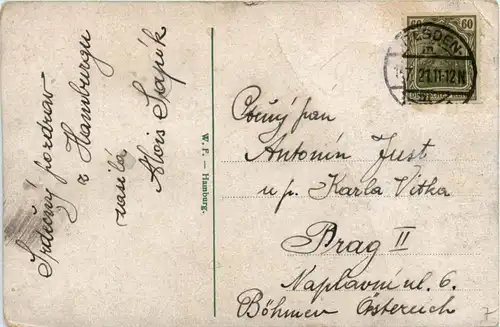 Srdečný pozdrav
z Hamburgu
zasílá
Alois Sapík
W. P. – Hamburg.
60 60
DRESDEN
21.11-12N
Ctěný pan
Antonín Just
u p. Karla Vitka
Prag II
Naplavní ul. 6.
Böhmen Östereich
7